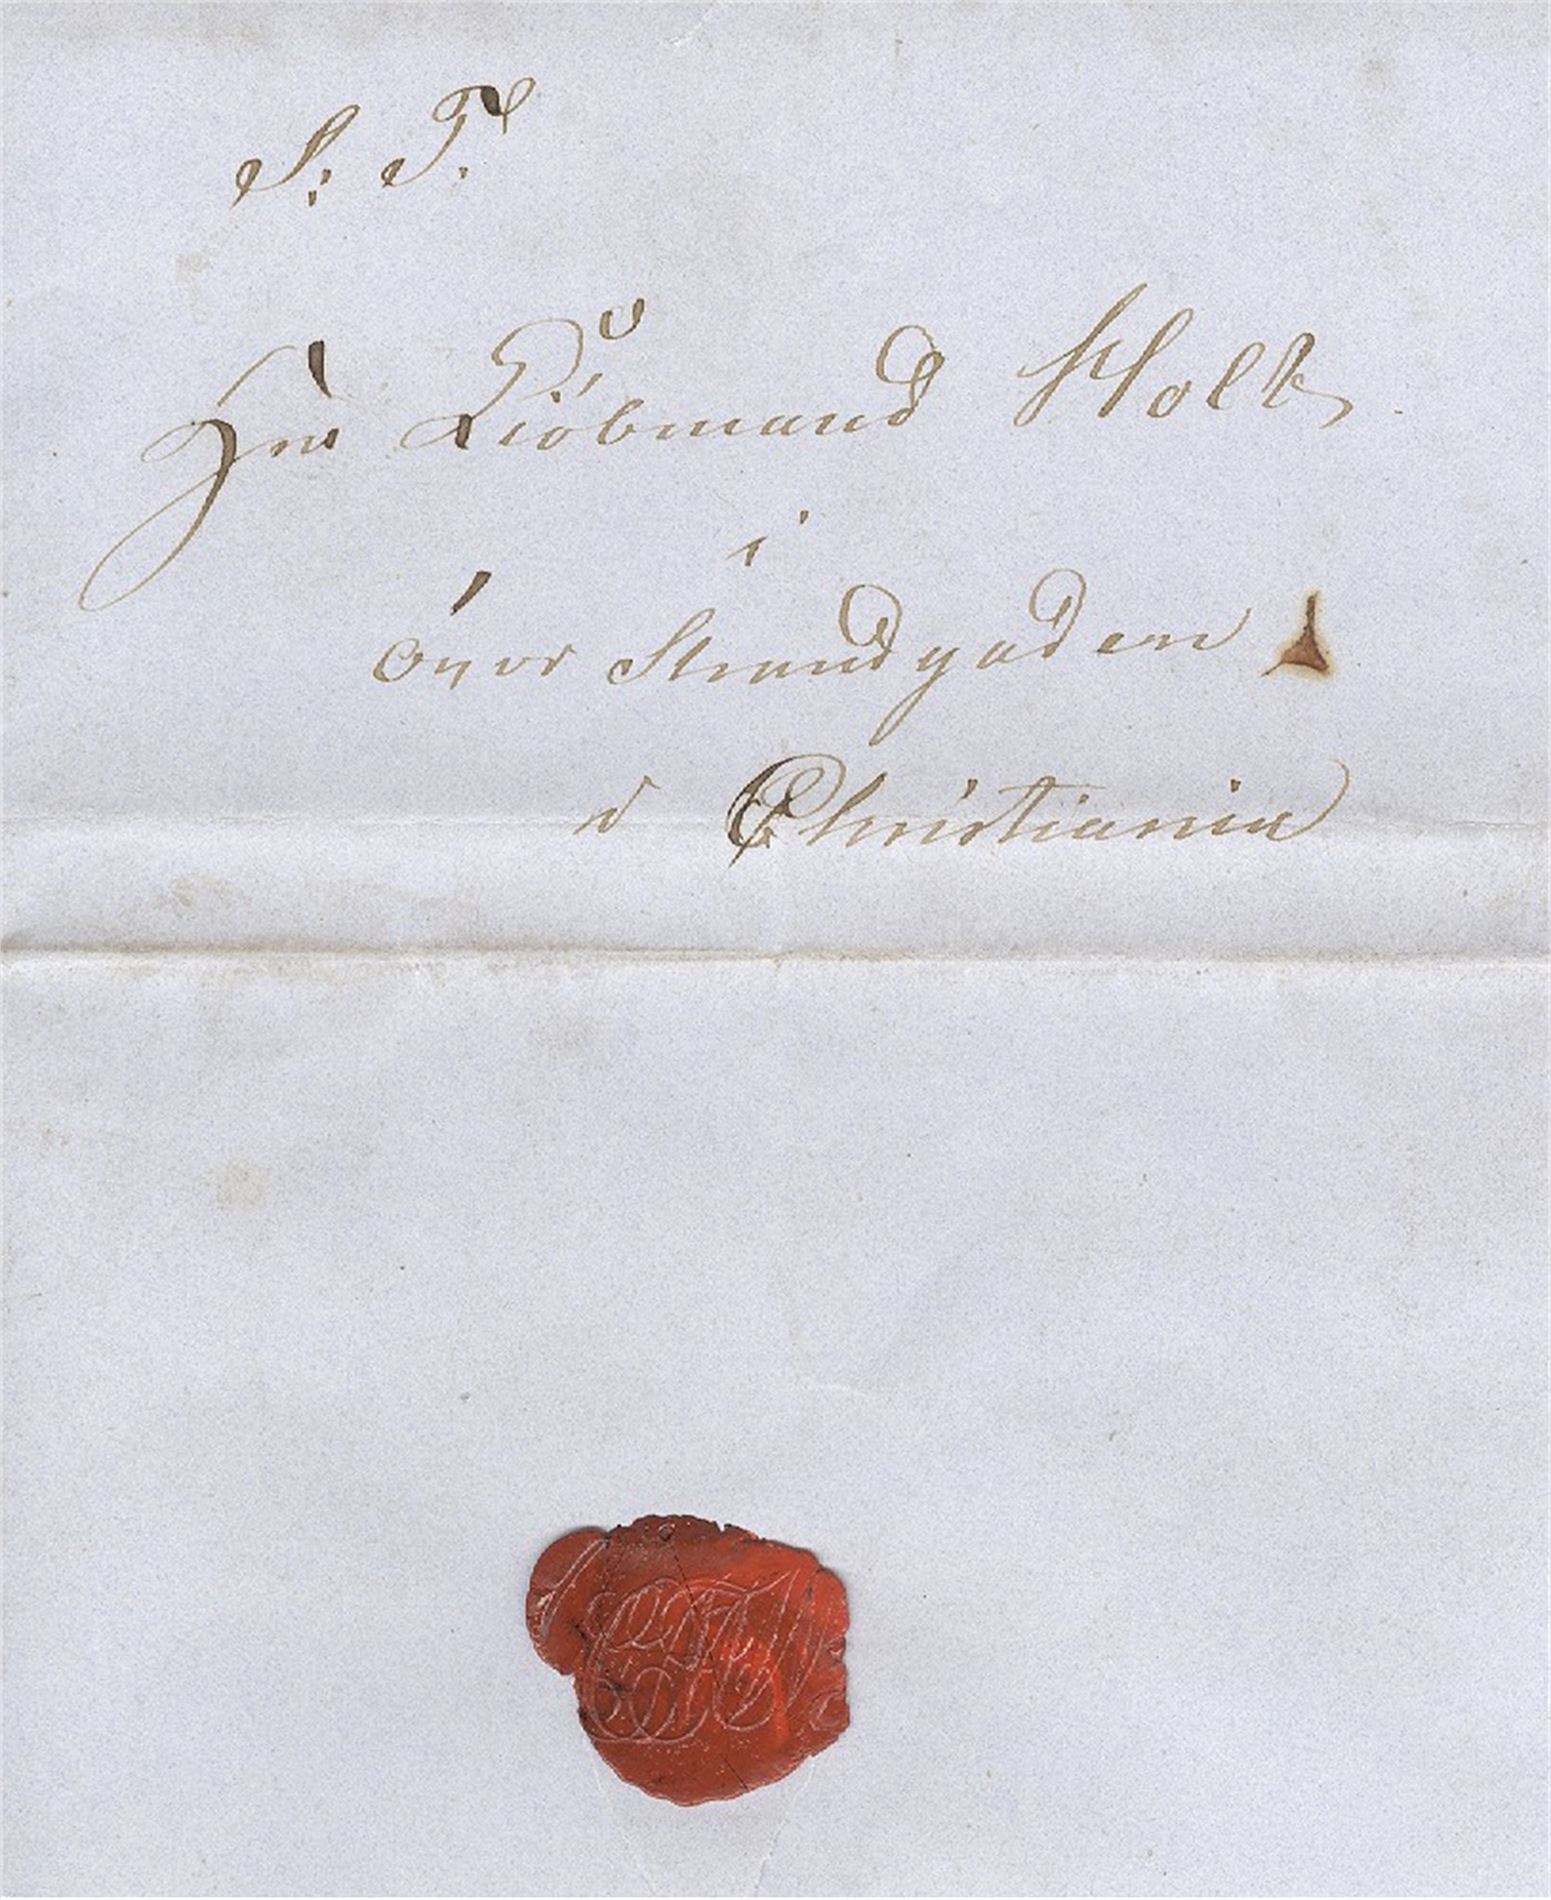 S. T.
Herr Kiöbmand Holt
i
övre Strandgaden
i Christiania